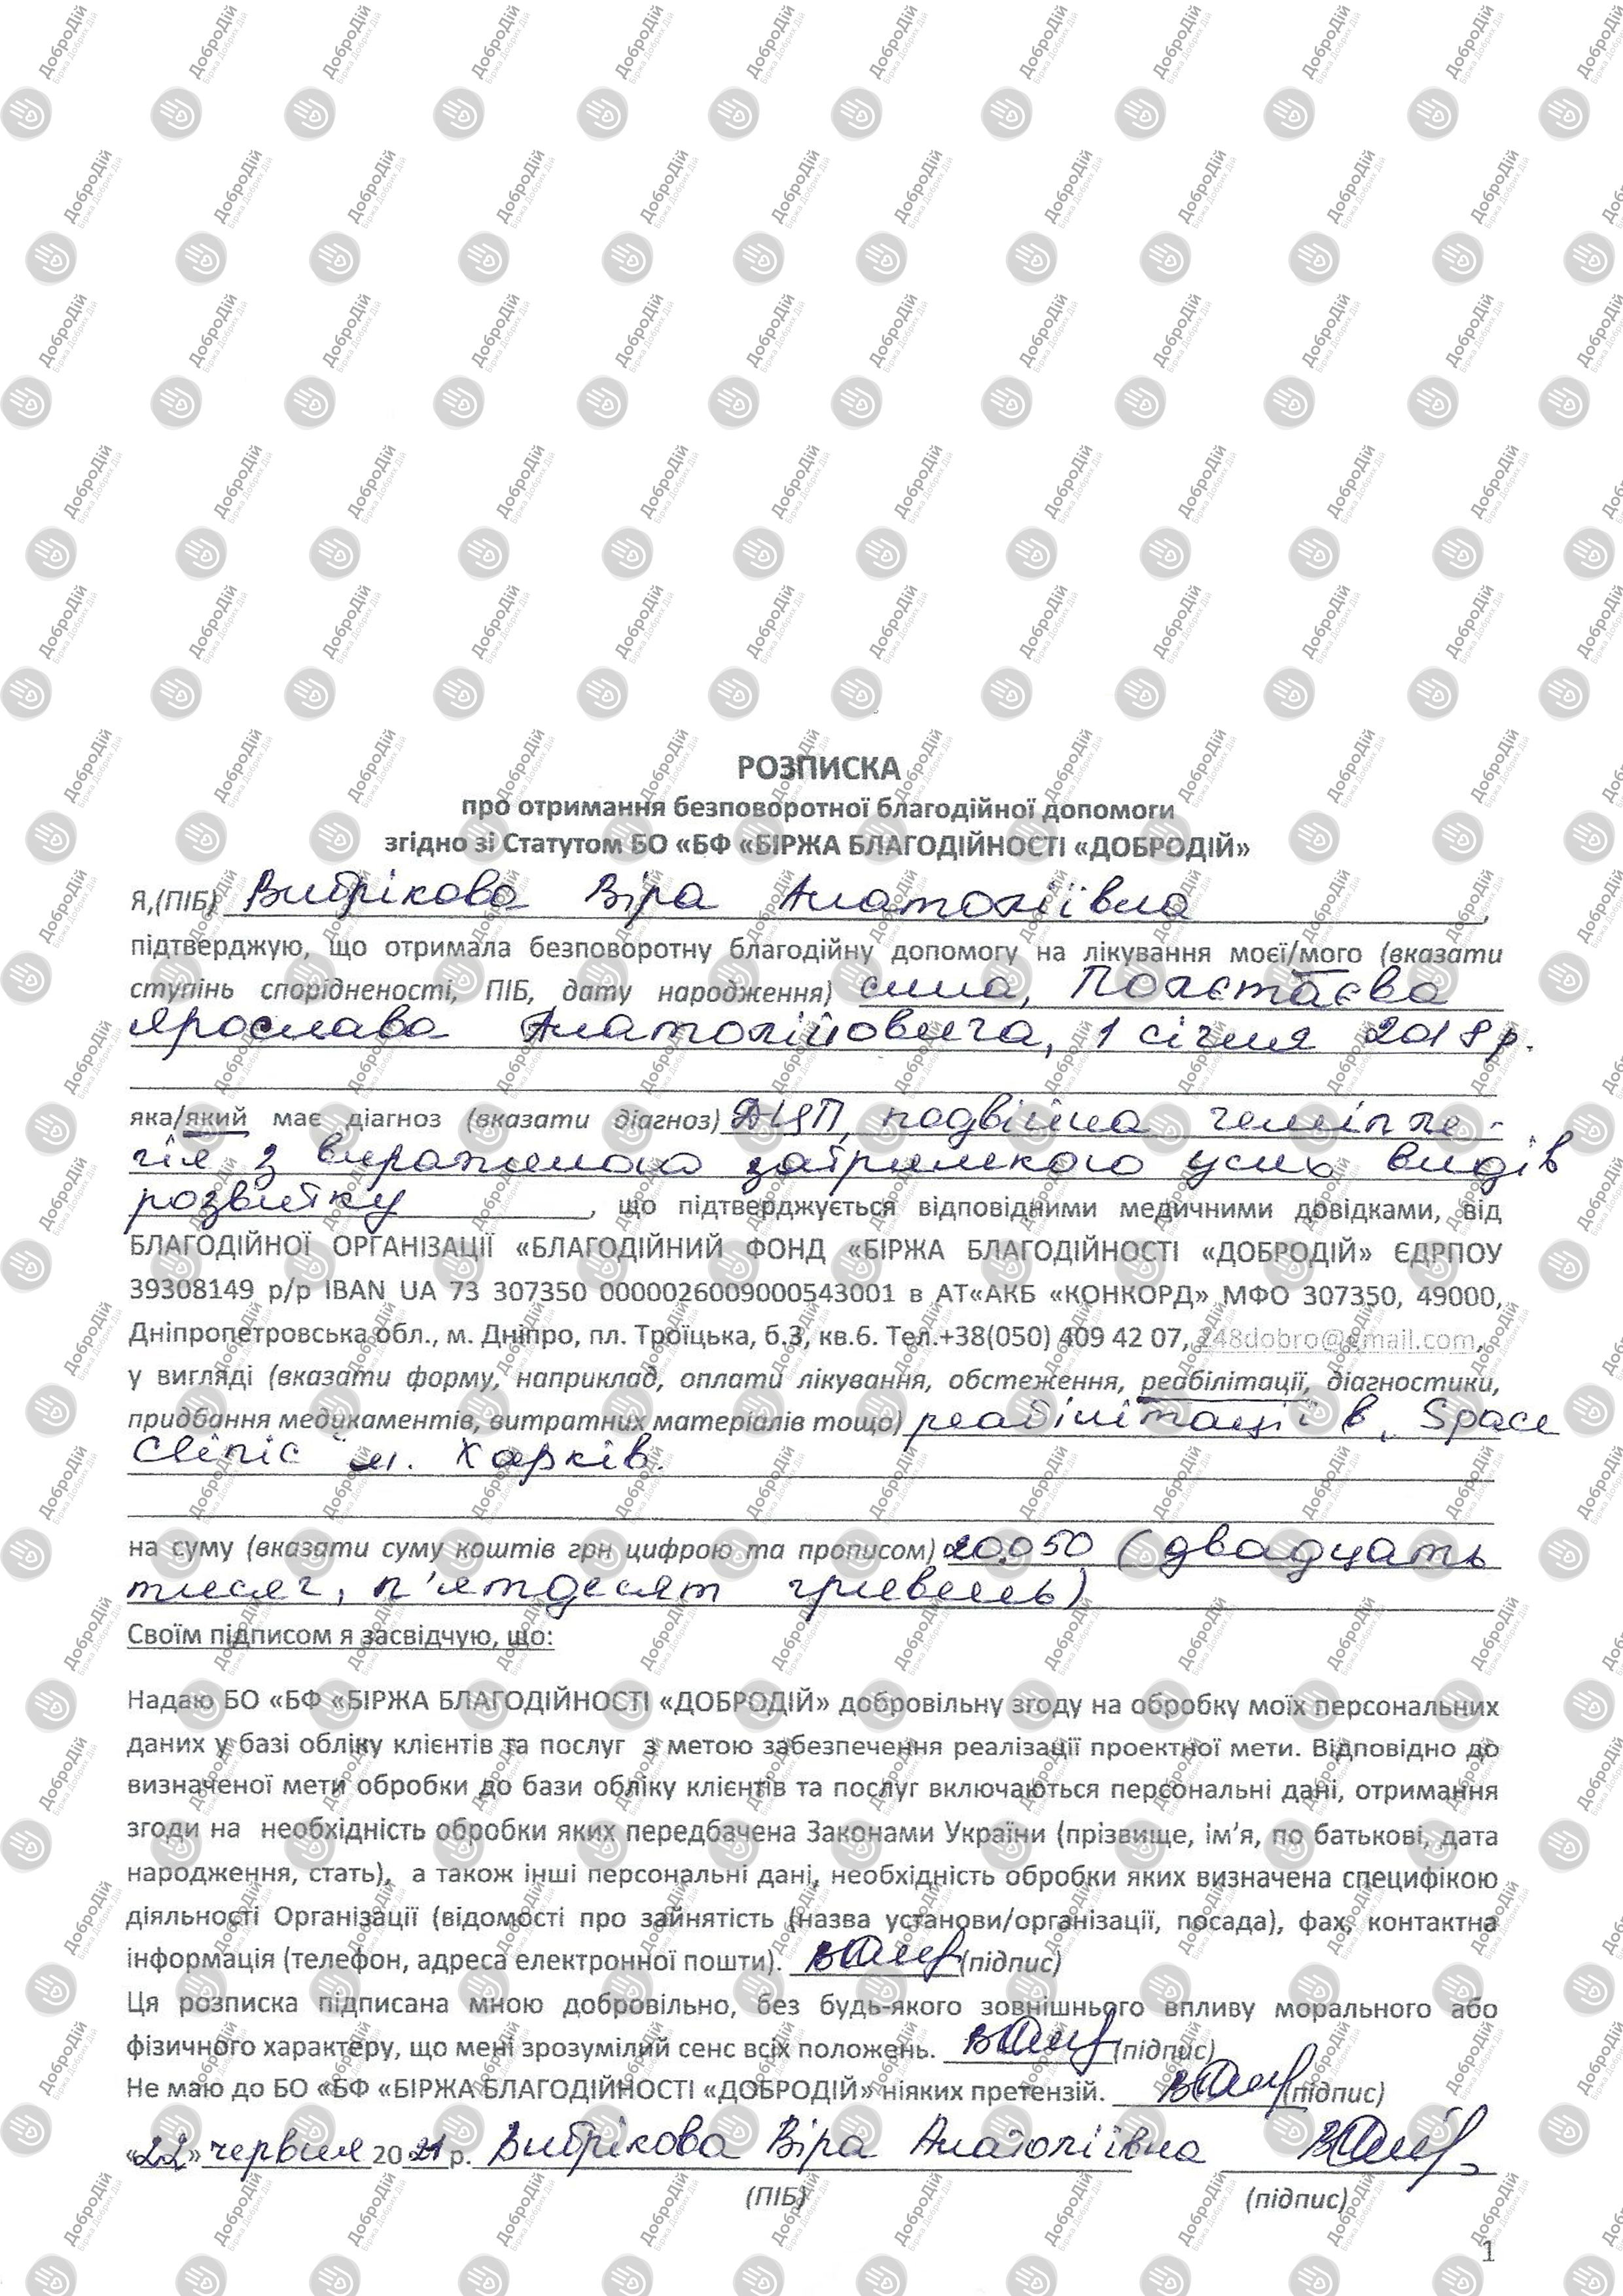 РОЗПИСКА
про отримання безповоротної благодійної допомоги
згідно зі Статутом БО «БФ «БІРЖА БЛАГОДІЙНОСТІ «ДОБРОДІЙ»
Я,(ПІБ) Вибрікова Віра Анатоліївна,
підтверджую, що отримала безповоротну благодійну допомогу на лікування моєї/мого (вказати
ступінь спорідненості, ПІБ, дату народження) сина, Полєтаєва
Ярослава Анатолійовича, 1 січня 2018 р.
яка/який має діагноз (вказати діагноз) ДЦП, подвійна геміпле-
гія з вираженою затримкою усих видів
розвитку, що підтверджується відповідними медичними довідками, від
БЛАГОДІЙНОЇ ОРГАНІЗАЦІЇ «БЛАГОДІЙНИЙ ФОНД «БІРЖА БЛАГОДІЙНОСТІ «ДОБРОДІЙ» ЄДРПОУ
39308149 р/р IBAN UA 73 307350 0000026009000543001 в АТ«АКБ «КОНКОРД» МФО 307350, 49000,
Дніпропетровська обл., м. Дніпро, пл. Троїцька, б.3, кв.6. Тел.+38(050) 409 42 07, 248dobro@gmail.com,
у вигляді (вказати форму, наприклад, оплати лікування, обстеження, реабілітації, діагностики,
придбання медикаментів, витратних матеріалів тощо) реабілітації в „Space
Clinic" м. Харків.
на суму (вказати суму коштів грн цифрою та прописом) 20050 (двадцать
тисяч, п'ятдесят гривень)
Своїм підписом я засвідчую, що:
Надаю БО «БФ «БІРЖА БЛАГОДІЙНОСТІ «ДОБРОДІЙ» добровільну згоду на обробку моїх персональних
даних у базі обліку клієнтів та послуг з метою забезпечення реалізації проектної мети. Відповідно до
визначеної мети обробки до бази обліку клієнтів та послуг включаються персональні дані, отримання
згоди на необхідність обробки яких передбачена Законами України (прізвище, ім'я, по батькові, дата
народження, стать), а також інші персональні дані, необхідність обробки яких визначена специфікою
діяльності Організації (відомості про зайнятість (назва установи/організації, посада), фах, контактна
інформація (телефон, адреса електронної пошти). (підпис)
Ця розписка підписана мною добровільно, без будь-якого зовнішнього впливу морального або
фізичного характеру, що мені зрозумілий сенс всіх положень. (підпис)
Не маю до БО «БФ «БІРЖА БЛАГОДІЙНОСТІ «ДОБРОДІЙ» ніяких претензій. (підпис)
«22» червня 2021 р. Вибрікова Віра Анатоліївна
(ПІБ) (підпис)
1